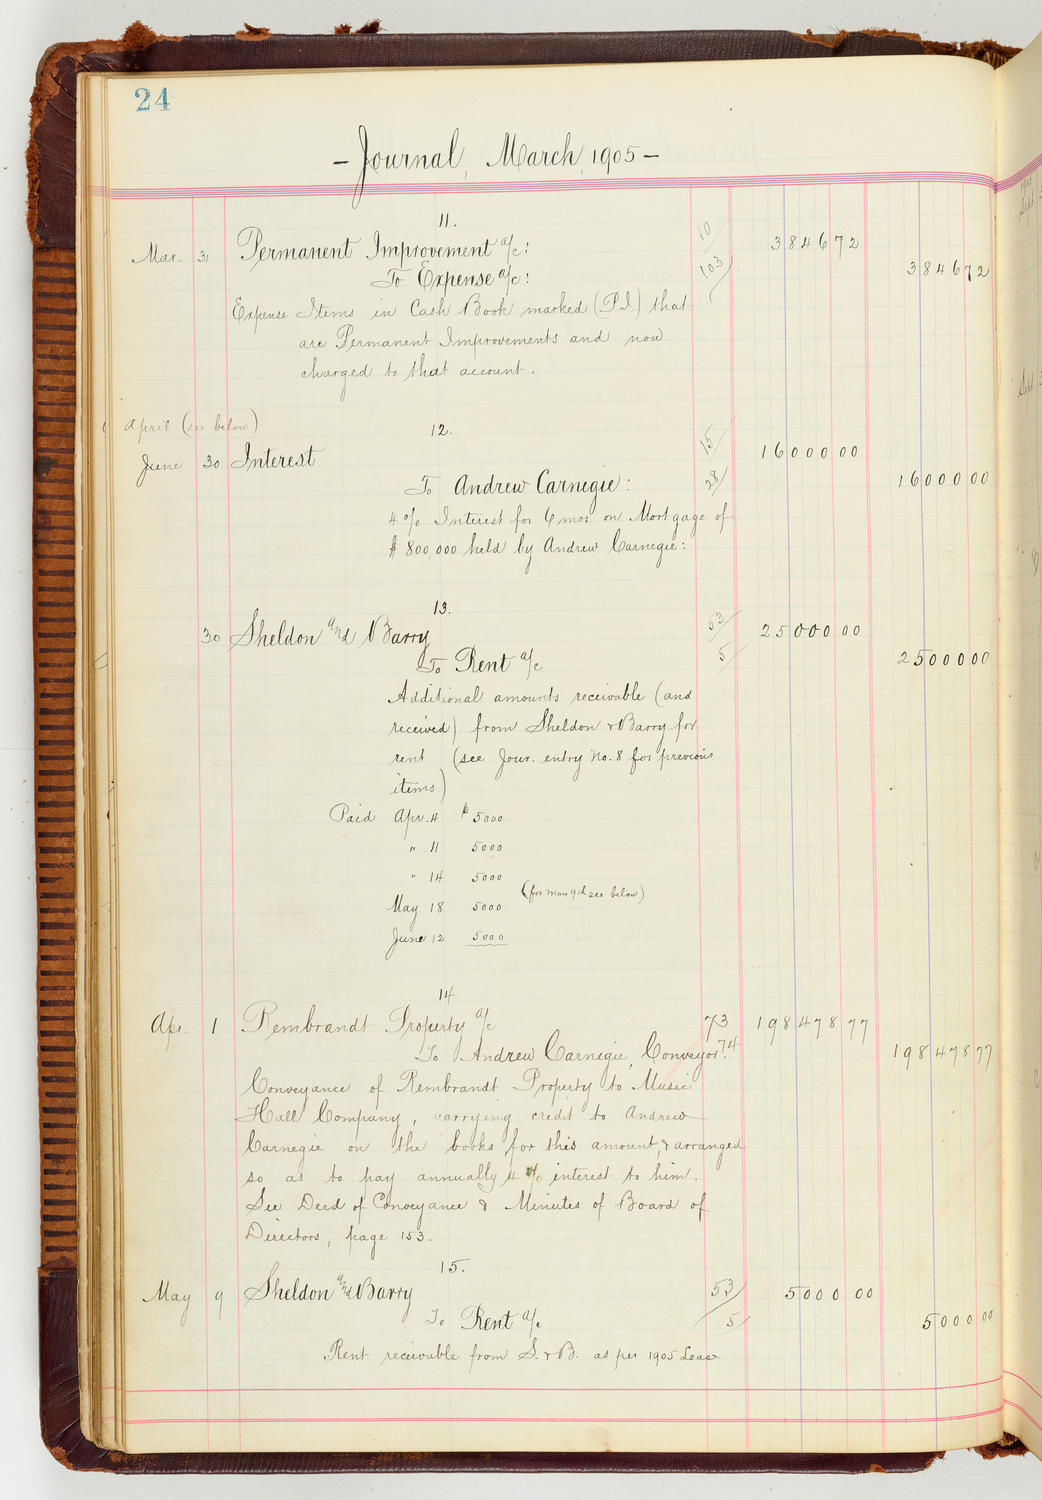 24
- Journal, March, 1905 -
11.
Mar. 31 Permanent Improvement a/c: 10 3846 72
To Expense a/c: 103 3846 72
Expense Items in Cash Book marked (P.I.) that
are Permanent Improvements and now
charged to that account.
April (see below)
12.
June 30 Interest 15 16000 00
To Andrew Carnegie: 28 16000 00
4% Interest for 6 mos on Mortgage of
$800,000 held by Andrew Carnegie:
13.
30 Sheldon and Barry 53 25000 00
To Rent a/c 5 25000 00
Additional amounts receivable (and
received) from Sheldon & Barry for
rent (see Jour. entry No. 8 for previous
items)
Paid Apr. 4 $ 5000
" 11 5000
" 14 5000
(for May 9th see below)
May 18 5000
June 12 5000
14
Apr. 1 Rembrandt Property a/c 73 198478 77
To Andrew Carnegie, Conveyor. 74 198478 77
Conveyance of Rembrandt Property to Music
Hall Company, carrying credit to Andrew
Carnegie on the books for this amount, & arranged
so as to pay annually 4% interest to him.
See Deed of Conveyance & Minutes of Board of
Directors, page 153.
15.
May 9 Sheldon and Barry 53 5000 00
To Rent a/c 5 5000 00
Rent receivable from S. & B. as per 1905 Lease
1905
Sept.
Sept.